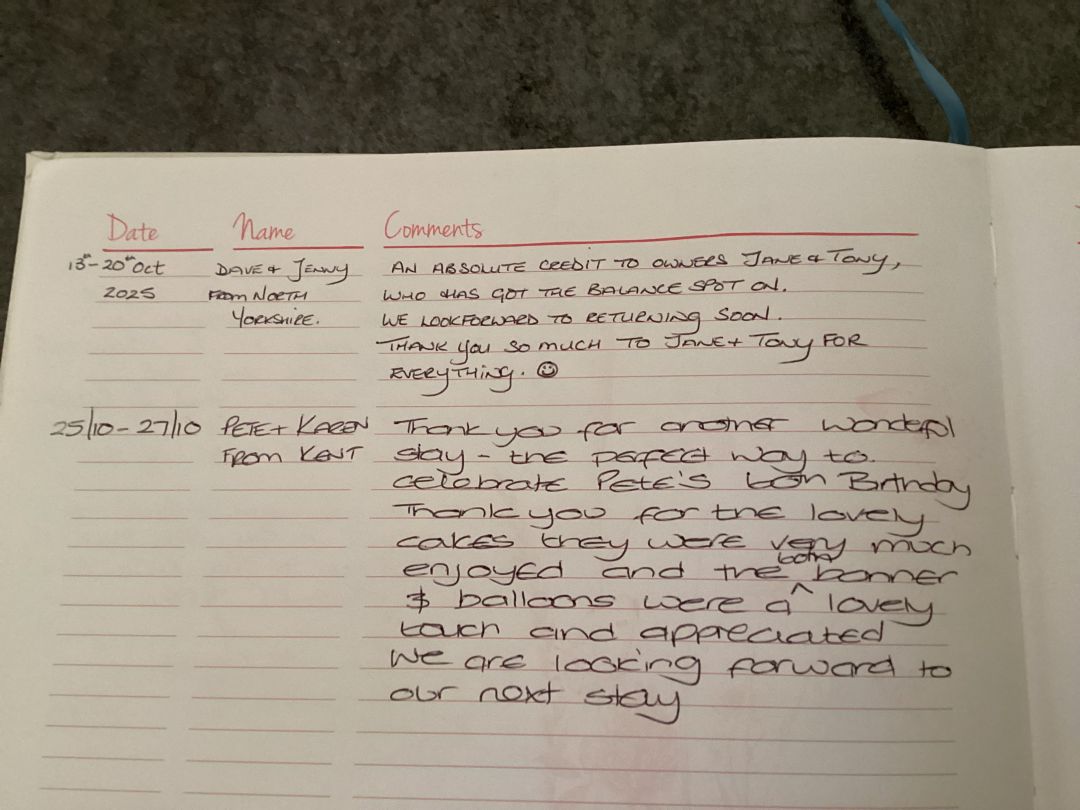 Date Name Comments
13th - 20th Oct DAVE + JENNY AN ABSOLUTE CREDIT TO OWNERS JANE & TONY,
2025 FROM NORTH WHO HAS GOT THE BALANCE SPOT ON.
YORKSHIRE. WE LOOKFORWARD TO RETURNING SOON.
THANK YOU SO MUCH TO JANE + TONY FOR
EVERYTHING. ☺
25/10 - 27/10 PETE + KAREN Thank you for another wonderful
FROM KENT stay - the perfect way to
celebrate Pete's Birthday
Thank you for the lovely
cakes they were very much
enjoyed and the banner
& balloons were a lovely
touch and appreciated
We are looking forward to
our next stay